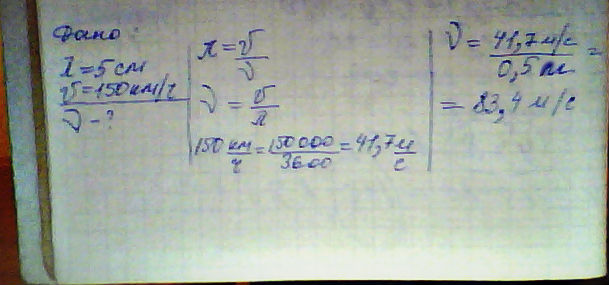 Дано:
λ = 5 см
υ = 150 км/ч
ν - ?
λ = υ/ν
ν = υ/λ
150 км/ч = 150 000/3600 = 41,7 м/с
ν = 41,7 м/с / 0,5 м =
= 83,4 м/с